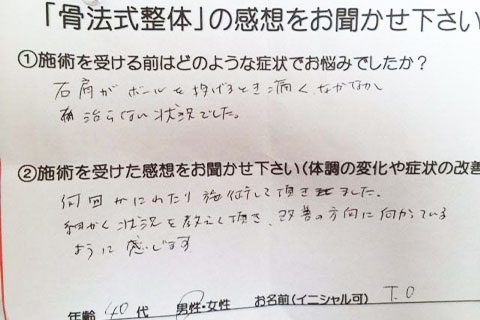 「骨法式整体」の感想をお聞かせ下さい
①施術を受ける前はどのような症状でお悩みでしたか？
右肩がボールを投げるとき痛く、なかなか
治らない状況でした。
②施術を受けた感想をお聞かせ下さい(体調の変化や症状の改善
何回かにわたり施術して頂きました。
細かく状況を教えて頂き、改善の方向に向かっている
ように感じます
年齢 40 代 男性・女性 お名前(イニシャル可) T.O